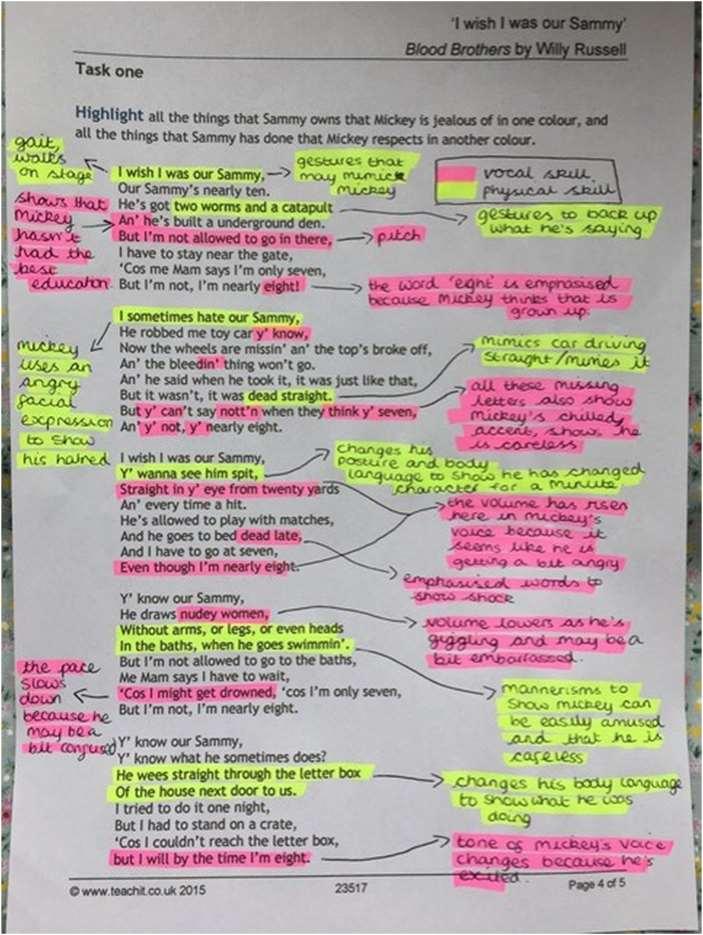 'I wish I was our Sammy'
Blood Brothers by Willy Russell
Task one
Highlight all the things that Sammy owns that Mickey is jealous of in one colour, and
all the things that Sammy has done that Mickey respects in another colour.
gait,
walks
on stage
gestures that
may mimick
mickey
vocal skill
physical skill
I wish I was our Sammy,
Our Sammy's nearly ten.
He's got two worms and a catapult
An' he's built a underground den.
But I'm not allowed to go in there,
I have to stay near the gate,
'Cos me Mam says I'm only seven,
But I'm not, I'm nearly eight!
shows that
Mickey
hasn't
had the
best
education.
gestures to back up
what he's saying.
pitch
the word 'eight' is emphasised
because Mickey thinks that is
grown up.
I sometimes hate our Sammy,
He robbed me toy car y' know,
Now the wheels are missin' an' the top's broke off,
An' the bleedin' thing won't go.
An' he said when he took it, it was just like that,
But it wasn't, it was dead straight.
But y' can't say nott'n when they think y' seven,
An' y' not, y' nearly eight.
mickey
uses an
angry
facial
expression
to show
his hatred
mimics car driving
straight/mimes it
all these missing
letters also show
Mickey's chilled
accent, shows he
is careless
I wish I was our Sammy,
Y' wanna see him spit,
Straight in y' eye from twenty yards
An' every time a hit.
He's allowed to play with matches,
And he goes to bed dead late,
And I have to go at seven,
Even though I'm nearly eight.
changes his
posture and body
language to show he has changed
character for a minute
the volume has risen
here in mickey's
voice because it
seems like he is
getting a bit angry
emphasised words to
show shock
Y' know our Sammy,
He draws nudey women,
Without arms, or legs, or even heads
In the baths, when he goes swimmin'.
But I'm not allowed to go to the baths,
Me Mam says I have to wait,
'Cos I might get drowned, 'cos I'm only seven,
But I'm not, I'm nearly eight.
volume lowers as he's
giggling and may be a
bit embarrassed.
the pace
slows
down
because he
may be a
bit confused
mannerisms to
show mickey can
be easily amused
and that he is
careless
Y' know our Sammy,
Y' know what he sometimes does?
He wees straight through the letter box
Of the house next door to us.
I tried to do it one night,
But I had to stand on a crate,
'Cos I couldn't reach the letter box,
but I will by the time I'm eight.
changes his body language
to show what he was
doing
tone of mickey's voice
changes because he's
excited.
© www.teachit.co.uk 2015
23517
Page 4 of 5